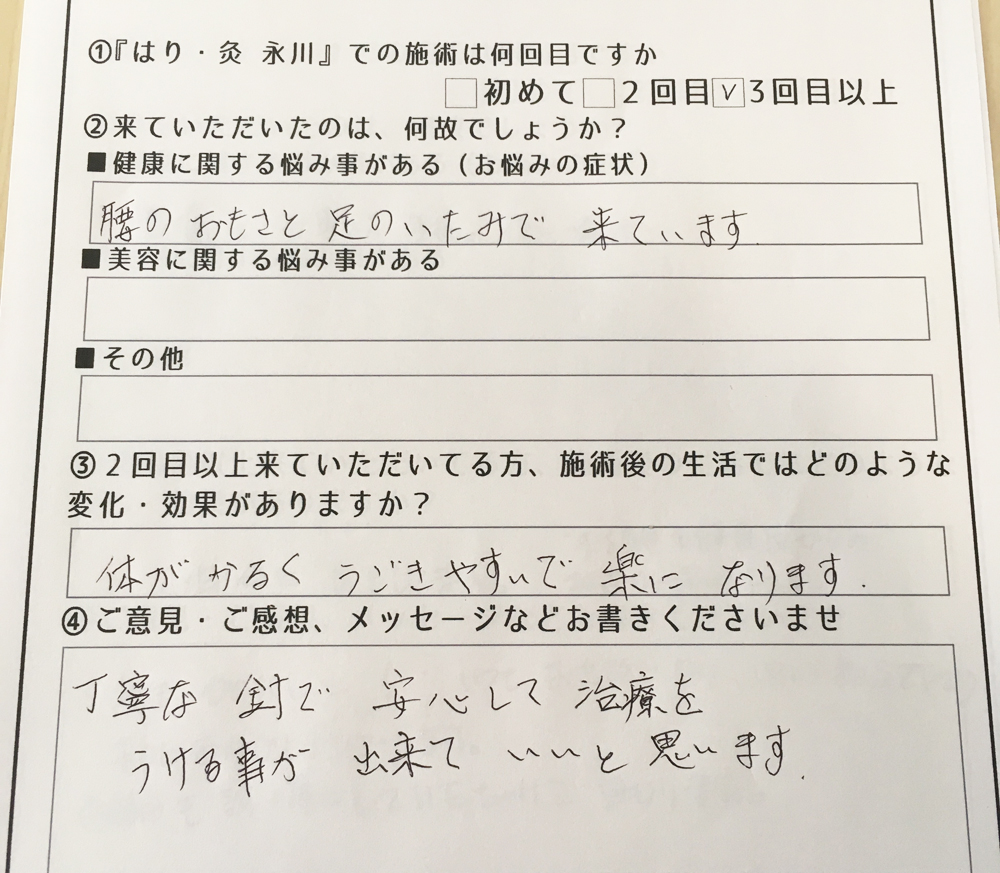 ①『はり・灸 永川』での施術は何回目ですか
□初めて□2回目☑3回目以上
②来ていただいたのは、何故でしょうか？
■健康に関する悩み事がある（お悩みの症状）
腰のおもさと足のいたみで 来ています.
■美容に関する悩み事がある
■その他
③2回目以上来ていただいてる方、施術後の生活ではどのような
変化・効果がありますか？
体がかるく うごきやすいで 楽に なります.
④ご意見・ご感想、メッセージなどお書きくださいませ
丁寧な 針で 安心して 治療を
うける事が 出来て いいと 思います.